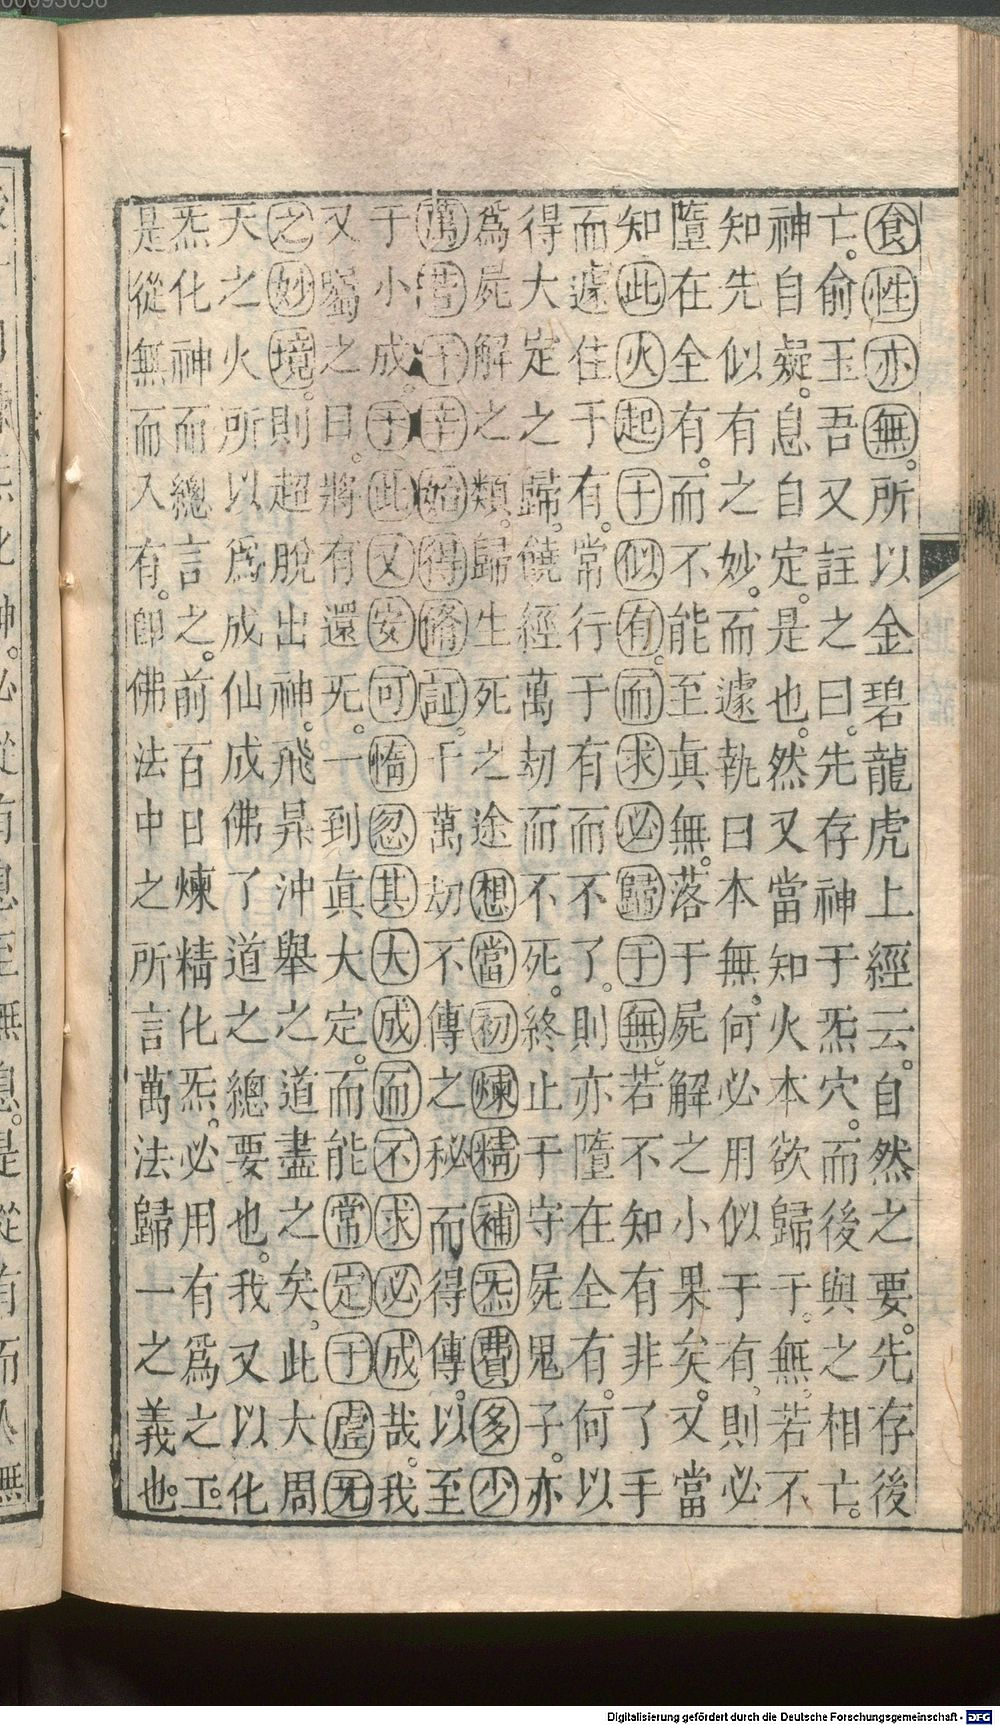 食性亦無。所以金碧龍虎上經云。自然之要。先存後
亡。俞玉吾又註之曰。先存神于炁穴。而後與之相亡。
神自凝。息自定。是也。然又當知火本欲歸于無。若不
知先似有之妙。而遽執曰本無。何必用似于有。則必
墮在全有。而不能至眞無。落于屍解之小果矣。又當
知此火起于似有。而求必歸于無。若不知有非了手
而遽住于有。常行于有而不了。則亦墮在全有。何以
得大定之歸。饒經萬刧而不死。終止于守屍鬼子。亦
爲屍解之類。歸生死之途想當初煉精補炁費多少
萬苦千辛始得脩証。千萬刧不傳之秘而得傳。以至
于小成。于此又安可惰忽其大成而不求必成哉。我
又囑之曰。將有還无。一到眞大定。而能常定于虛无
之妙境。則超脫出神。飛昇沖舉之道盡之矣。此大周
天之火所以爲成仙成佛了道之總要也。我又以化
炁化神而總言之。前百日煉精化炁。必用有爲之工。
是從無而入有。卽佛法中之所言萬法歸一之義也。
Digitalisierung gefördert durch die Deutsche Forschungsgemeinschaft - DFG